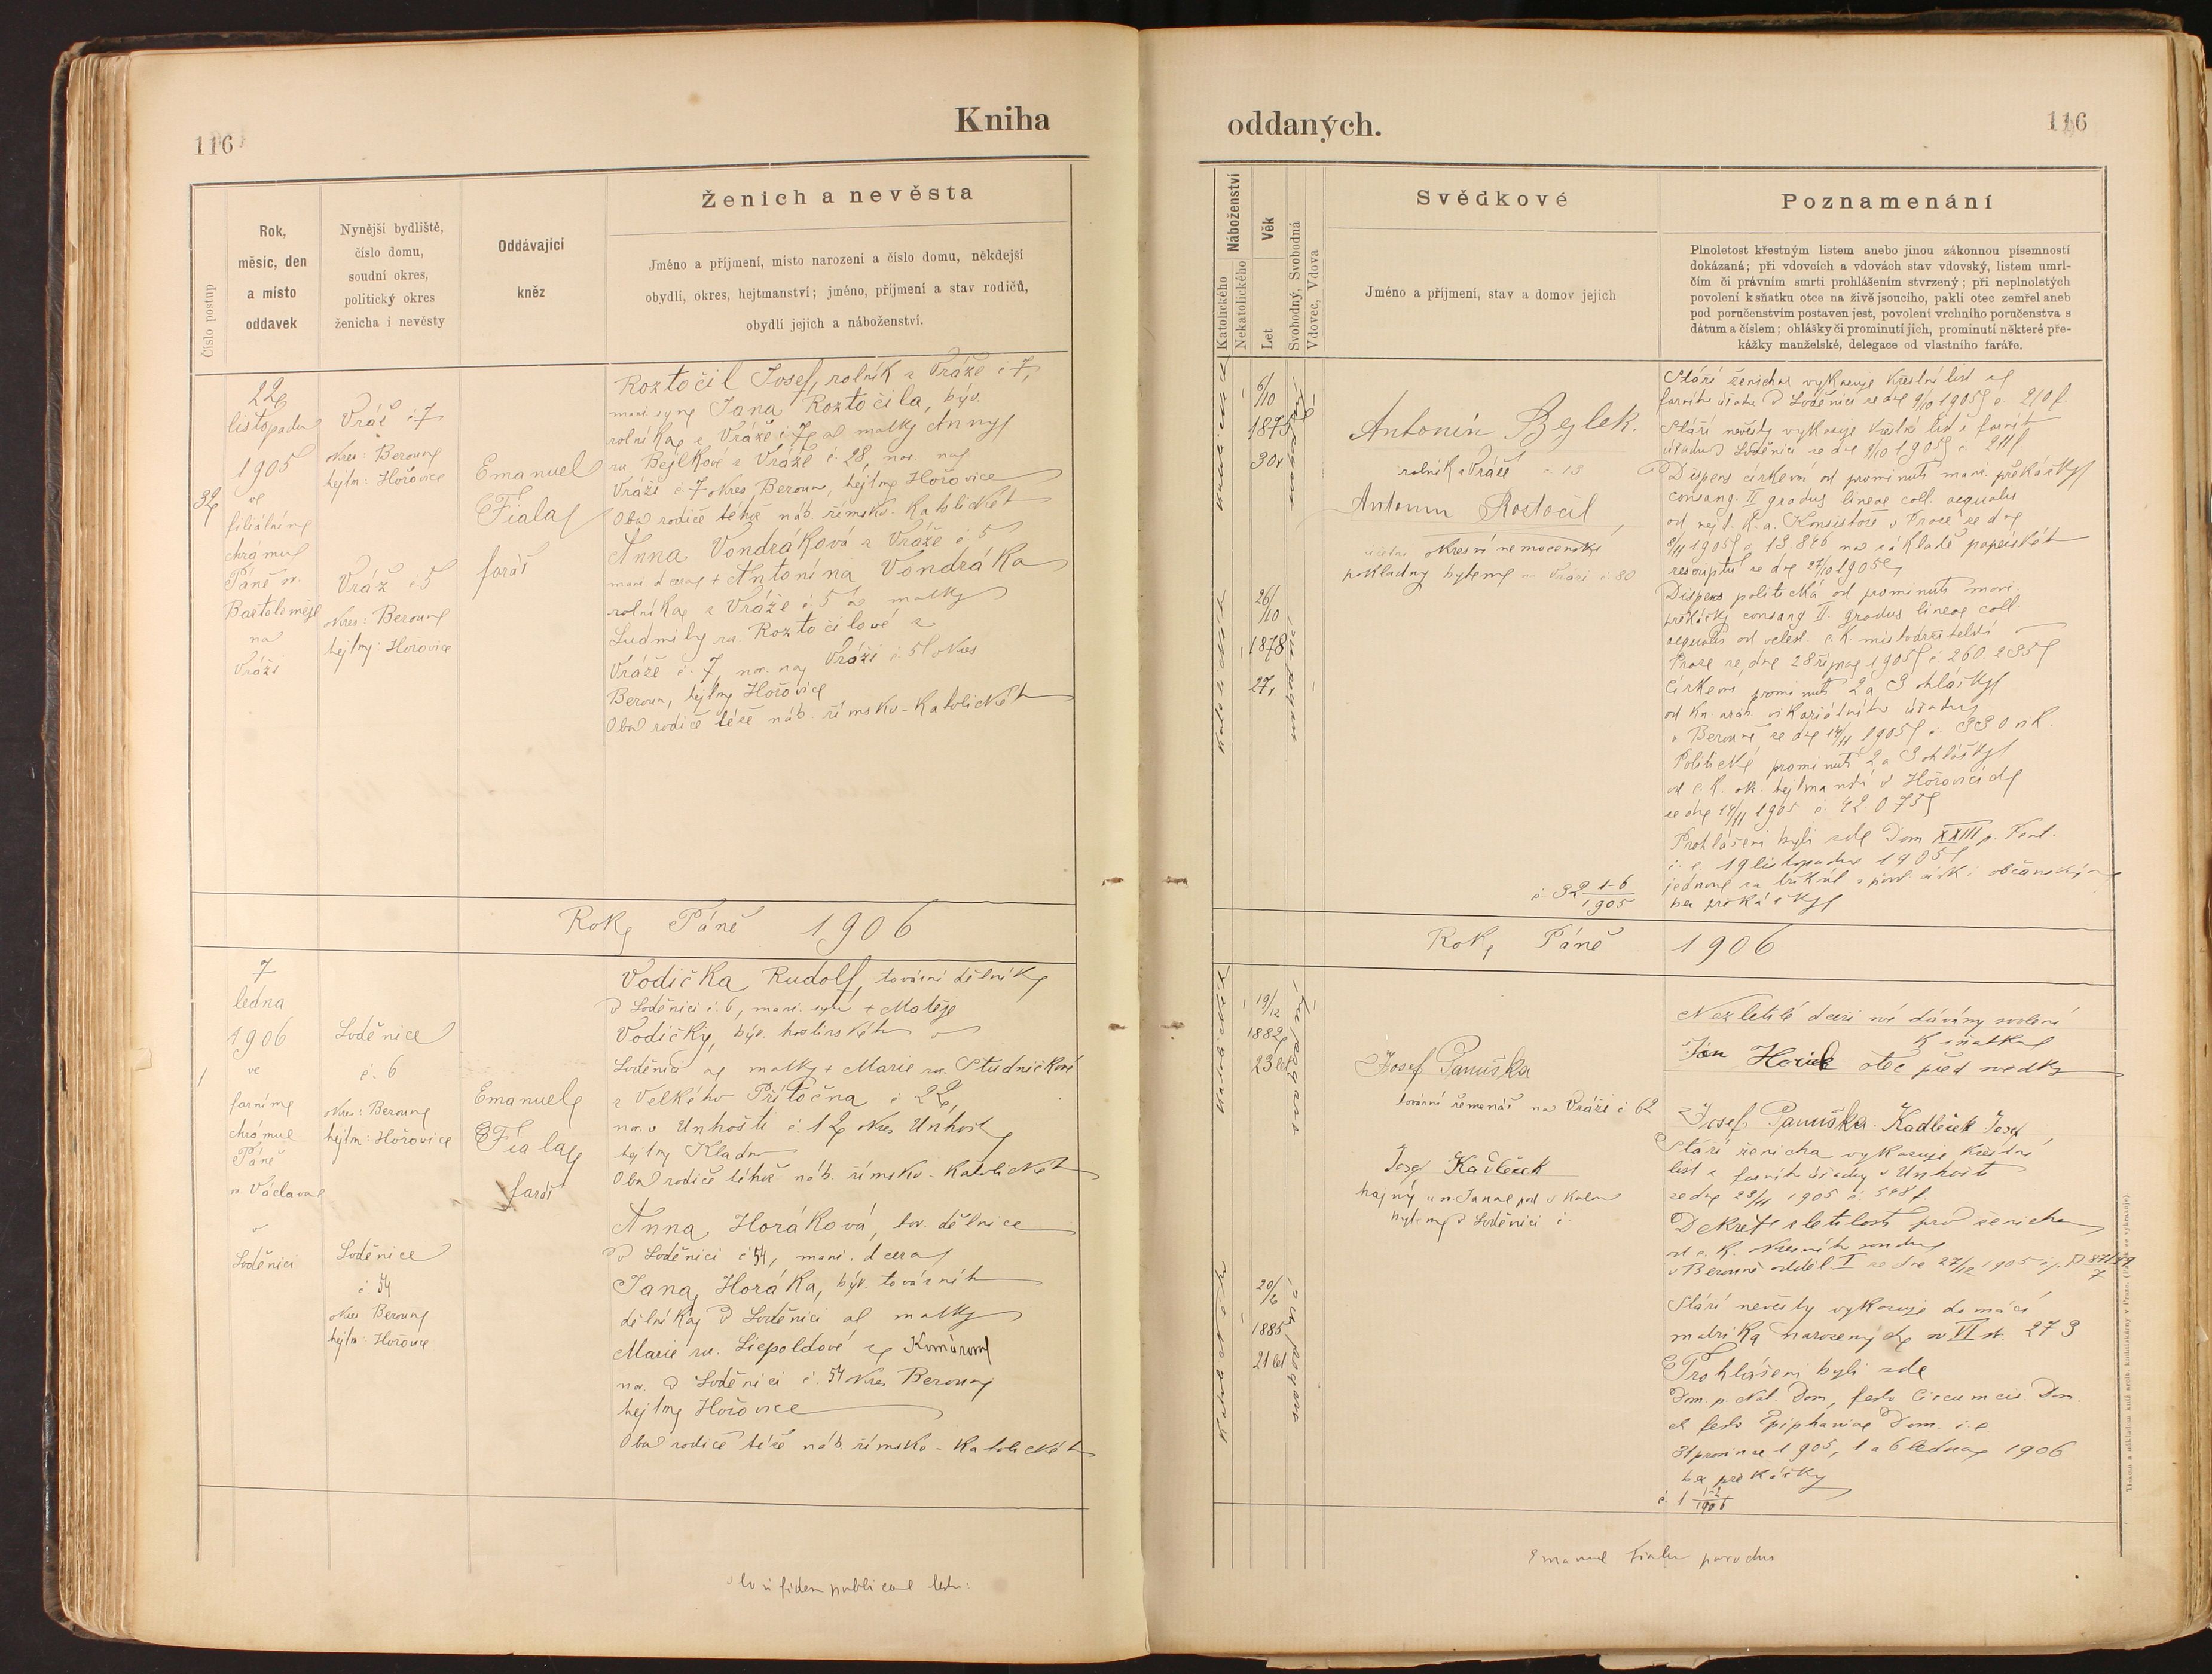 116
Kniha
Číslo postup
Rok,
měsíc, den
a místo
oddavek
Nynější bydliště,
číslo domu,
soudní okres,
politický okres
ženicha i nevěsty
Oddávající
kněz
Ženich a nevěsta
Jméno a příjmení, místo narození a číslo domu, někdejší
obydlí, okres, hejtmanství; jméno, příjmení a stav rodičů,
obydlí jejich a náboženství.
32
22
listopadu
1905
ve
filiálním
chrámu
Páně sv.
Bartoloměje
na
Vráži
Vráž č 7
okres: Beroun
hejtm: Hořovice
Vráž č 5
okres: Beroun
hejtm: Hořovice
Emanuel
Fiala
farář
Roztočil Josef, rolník z Vráže č 7,
manž. syn Jana Roztočila, býv.
rolníka z Vráže č 7 a matky Anny
roz. Bejlkové z Vráže č. 28, nar. na
Vráži č 7 okres Beroun, hejtm Hořovice
Oba rodiče téhož náb. římsko-katolického
Anna Vondráková z Vráže č. 5
manž. dcera + Antonína Vondráka
rolníka z Vráže č. 5 a matky
Ludmily roz. Roztočilové z
Vráže č. 7, nar. na Vráži č. 5 okres
Beroun, hejtm Hořovice
Oba rodiče téže náb. římsko-katolického
Rok Páně 1906
1
7
ledna
1906
ve
farním
chrámu
Páně
sv. Václava
v
Loděnici
Loděnice
č. 6
okres: Beroun
hejtm: Hořovice
Loděnice
č 54
okres Beroun
hejtm: Hořovice
Emanuel
Fiala
farář
Vodička Rudolf, tovární dělník
v Loděnici č. 6, manž. syn + Matěje
Vodičky, býv.
Loděnici a matky + Marie roz. Studničkové
z Velkého Přítočna č 22,
nar. v Unhošti č. 12 okres Unhošť
hejtm Kladno
Oba rodiče téhož náb. římsko-katolického
Anna Horáková, tov. dělnice
v Loděnici č 54, manž. dcera
Jana Horáka, býv. továrního
dělníka v Loděnici a matky
Marie roz. Liepoldové z Komárova
nar. v Loděnici č. 54 okres Beroun
hejtm Hořovice
Oba rodiče téže náb. římsko-katolického
fidem publicam
oddaných.
116
Náboženství
Katolického
Nekatolického
Věk
Let
Svobodný, Svobodná
Vdovec, Vdova
Svědkové
Jméno a příjmení, stav a domov jejich
Poznamenání
Plnoletost křestným listem anebo jinou zákonnou písemností
dokázaná; při vdovcích a vdovách stav vdovský, listem umrl-
čím či právním smrti prohlášením stvrzený; při neplnoletých
povolení k sňatku otce na živě jsoucího, pakli otec zemřel aneb
pod poručenstvím postaven jest, povolení vrchního poručenstva s
dátum a číslem; ohlášky či prominutí jich, prominutí některé pře-
kážky manželské, delegace od vlastního faráře.
6/10
1875
30r
26/10
1878
27r
Antonín Bejlek.
rolník z Vráže č 13
Antonín Rostočil,
okresní nemocenské
pokladny bytem na Vráži č 80
č 32 1-6/1905
Stáří ženicha vykazuje křestní list z
farního úřadu v Loděnici ze dne 9/10 1905 č. 210f.
Stáří nevěsty vykazuje křestní list z farního
úřadu v Loděnici ze dne 9/10 1905 č. 211f
Dispens církevní od prominutí manž. překážky
consang. II gradus lineae coll. aequalis
od nejd. k. a. Konsistoře v Praze ze dne
8/11 1905 č. 13.826 na základě papežského
rescriptu ze dne 27/10 1905
Dispens politická od prominutí manž.
překážky consang II. gradus lineae coll.
aequalis od veleslav. c. k. místodržitelství
Praze ze dne 28 října 1905 č 260.235
Církevní prominutí 2 a 3 ohlášky
od kn. arcib. vikariátního úřadu
v Berouně ze dne 14/11 1905 č. 330 n R.
Politické prominutí 2 a 3 ohlášky
od c. k. okr. hejtmanství v Hořovicích
ze dne 14/11 1905 č. 42.075
Prohlášeni byli zde Dom XXIII p. Pent.
i. e. 19 listopadu 1905
jednou za třikrát s povol. círk. i občanským
bez překážky
Rok Páně 1906
19/12
1882
23 let
20/6
1885
21 let
Josef Panuška
tovární řemenář na Vráži č 62
Josef Kadleček
hajný u sv. Jana pod Skalou
bytem v Loděnici č.
Nezletilé dceři své dávám svolení
k sňatku
Jan Horák otec před svědky
Josef Panuška Kadleček Josef
Stáří ženicha vykazuje křestní
list z farního úřadu v Unhošti
ze dne 23/11 1905 č. 548 f.
Dekret zletilosti pro ženicha
od c. k. okresního soudu
v Berouně odděl I ze dne 27/12 1905
Stáří nevěsty vykazuje domácí
matrika narozených sv VI st. 273
Prohlášeni byli zde
Dom. p. Nat. Dom, festo Circumcis. Dom.
et festo Epiphaniae Dom. i. e
31 prosince 1905, 1 a 6 ledna 1906
bez překážky
č. 1 1-2/1906
Emanuel Fiala parochus